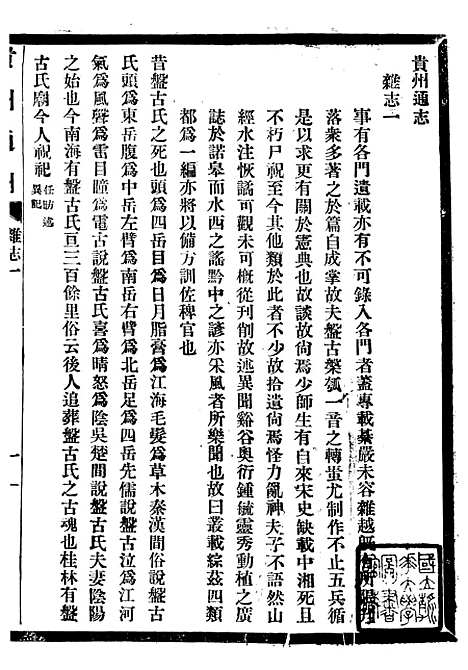 貴州通志
雜志一
事有各門遺載亦有不可錄入各門者蓋專載綦嚴未容雜越旣有所
落衆多著之於篇自成掌故夫盤古槃瓠一音之轉蚩尤制作不止五兵循
是以求更有關於憲典也故談故尙焉少師生有自來宋史缺載中湘死且
不朽尸祝至今其他類於此者不少故拾遺尙焉怪力亂神夫子不語然山
經水注恢譎可觀未可槪從刊削故述異聞谿谷奥衍鍾毓靈秀動植之廣
誌於諾皋而水西之謠黔中之諺亦采風者所樂聞也故曰叢載綜茲四類
都爲一編亦將以備方訓佐稗官也
昔盤古氏之死也頭爲四岳目爲日月脂膏爲江海毛髮爲草木秦漢間俗說盤古
氏頭爲東岳腹爲中岳左臂爲南岳右臂爲北岳足爲西岳先儒說盤古泣爲江河
氣爲風聲爲雷目瞳爲電古說盤古氏喜爲晴怒爲陰吳楚間說盤古氏夫妻陰陽
之始也今南海有盤古氏亘三百餘里俗云後人追葬盤古氏之古魂也桂林有盤
古氏廟今人祝祀任昉述異記
貴州通志
雜志一
一